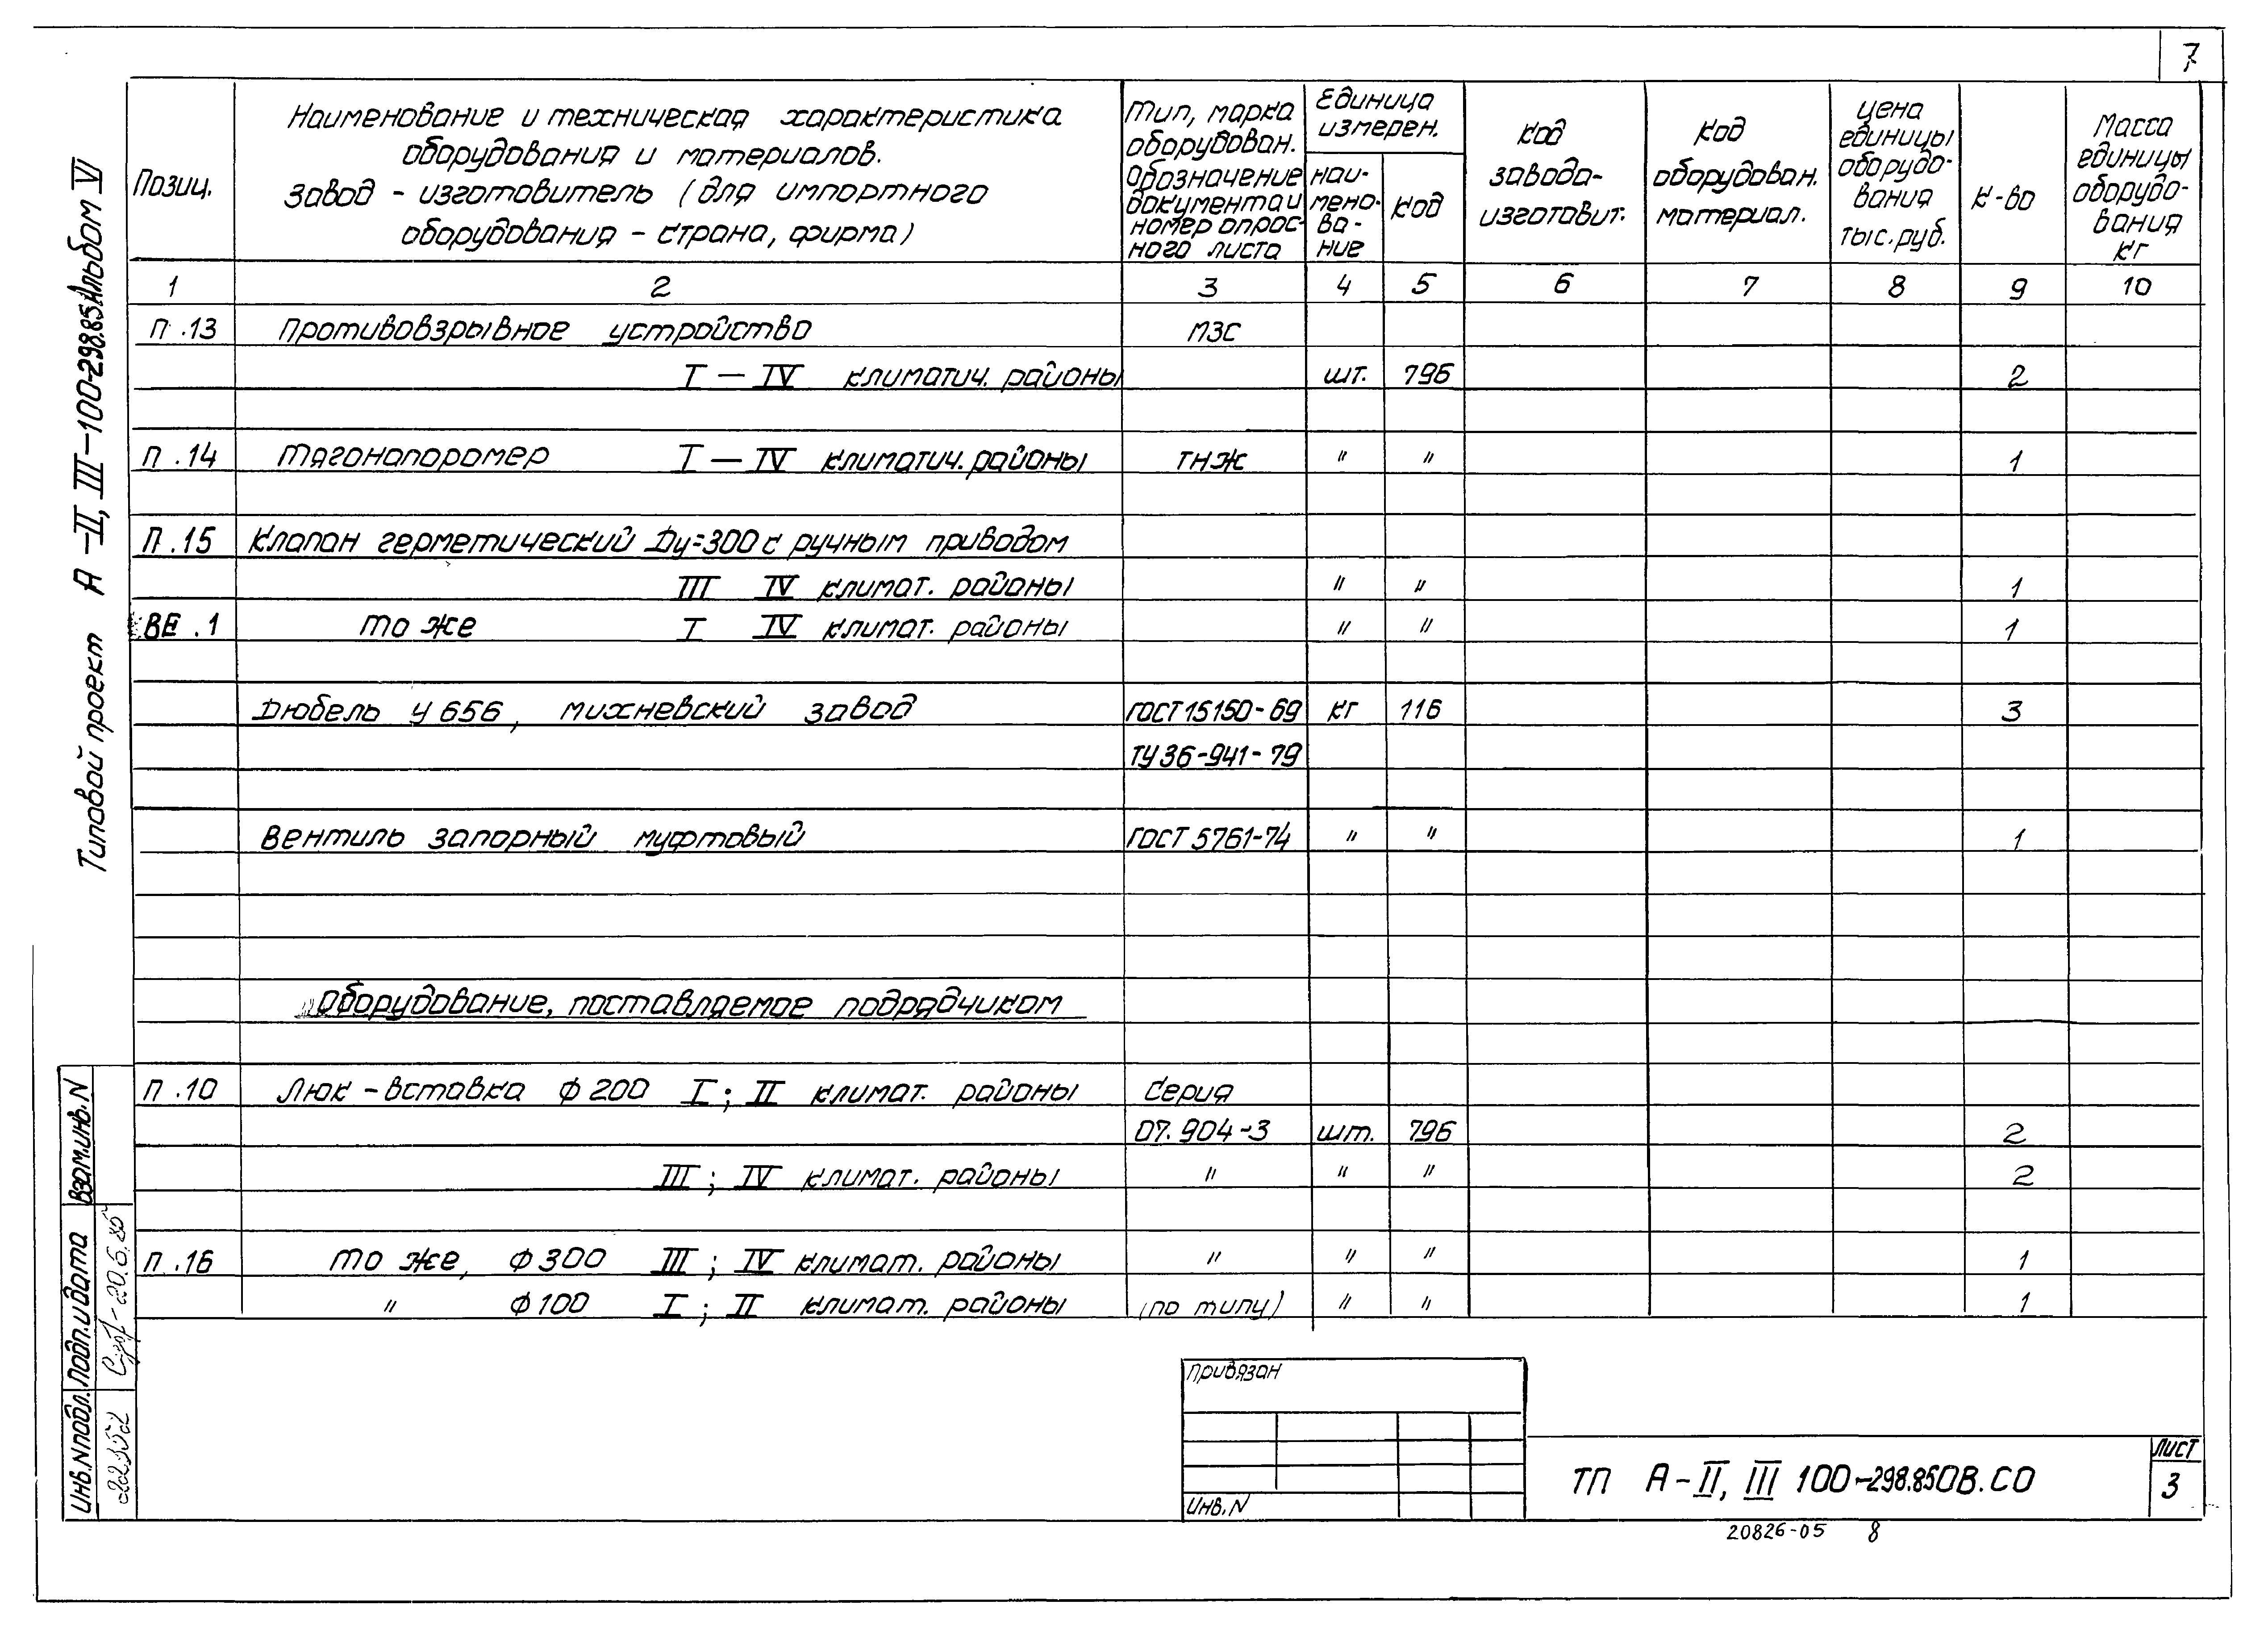 7
Позиц.
Наименование и техническая характеристика
оборудования и материалов.
Завод - изготовитель (для импортного
оборудования - страна, фирма)
Тип, марка
оборудован.
Обозначение
документа и
номер опрос-
ного листа
Единица
измерен.
наи-
мено-
ва-
ние
Код
Код
завода-
изготовит.
Код
оборудован.
материал.
Цена
единицы
оборудо-
вания
тыс.руб.
К-во
Масса
единицы
оборудо-
вания
кг
1 2 3 4 5 6 7 8 9 10
П.13 Противовзрывное устройство МЗС
I — IV климатич. районы шт. 796 2
П.14 Тягонапоромер I — IV климатич. районы ТНЖ " " 1
П.15 Клапан герметический Ду=300 с ручным приводом
III IV климат. районы " " 1
ВЕ.1 то же I IV климат. районы " " 1
Дюбель У656, Михневский завод ГОСТ 15150-69 кг 116 3
ТУ36-941-79
Вентиль запорный муфтовый ГОСТ 5761-74 " " 1
Оборудование, поставляемое подрядчиком
П.10 Люк-вставка Ф200 I; II климат. районы Серия
07.904-3 шт. 796 2
III; IV климат. районы " " " 2
П.16 то же, Ф300 III; IV климат. районы " " " 1
" Ф100 I; II климат. районы (по типу) " " 1
Типовой проект А-II, III-100-298.85 Альбом V
Взам.инв.N
Подп.и дата
20.6.85
Инв.N подл.
Привязан
Инв.N
ТП А-II, III 100-298.85 ОВ.СО
Лист
3
20826-05 8